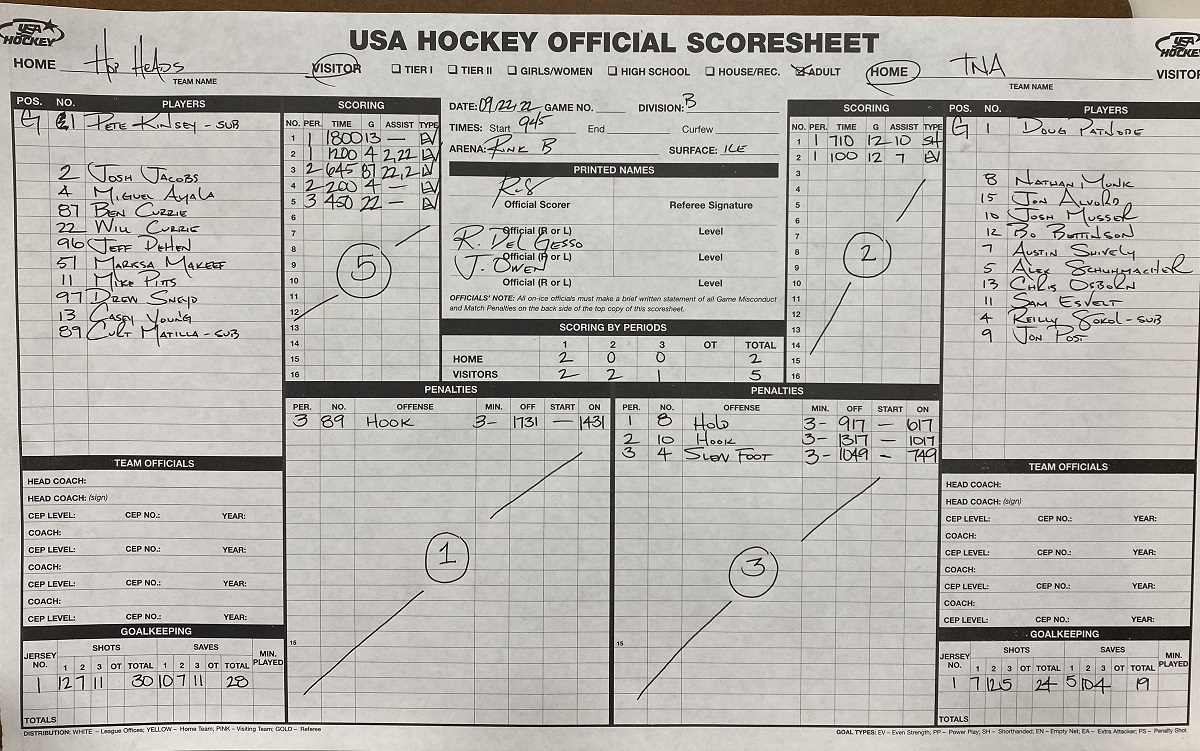 USA HOCKEY
USA HOCKEY OFFICIAL SCORESHEET
USA HOCKEY
HOME Hop Heads VISITOR
TEAM NAME
TIER I TIER II GIRLS/WOMEN HIGH SCHOOL HOUSE/REC. ADULT
HOME TNA VISITOR
TEAM NAME
POS. NO. PLAYERS
G 1 PETE KINSEY - SUB
2 JOSH JACOBS
4 MIGUEL AYALA
87 BEN CURRIE
22 WILL CURRIE
96 JEFF DEHEN
57 MARISSA MAKEEF
11 MIKE PITTS
97 DREW SNEYD
13 CASEY YOUNG
89 CURT MATILLA - SUB
SCORING
NO. PER. TIME G ASSIST TYPE
1 1 1800 13 — EV
2 1 1200 4 2,22 EV
3 2 645 87 22,2 EV
4 2 200 4 — EV
5 3 450 22 — EV
6
7
8
9
10
11
12
13
14
15
16
5
DATE: 09/22/22 GAME NO. DIVISION: B
TIMES: Start 945 End Curfew
ARENA: RINK B SURFACE: ICE
PRINTED NAMES
RS
Official Scorer Referee Signature
Official (R or L) Level
R. DEL GESSO
Official (R or L) Level
J. OWEN
Official (R or L) Level
OFFICIALS' NOTE: All on-ice officials must make a brief written statement of all Game Misconduct
and Match Penalties on the back side of the top copy of this scoresheet.
SCORING BY PERIODS
1 2 3 OT TOTAL
HOME 2 0 0 2
VISITORS 2 2 1 5
SCORING
NO. PER. TIME G ASSIST TYPE
1 1 710 12 10 SH
2 1 100 12 7 EV
3
4
5
6
7
8
9
10
11
12
13
14
15
16
2
POS. NO. PLAYERS
G 1 DOUG PATNODE
8 NATHAN MUNK
15 JON ALVORD
10 JOSH MUSSER
12 BO BOTTINSON
7 AUSTIN SHIVELY
5 ALEX SCHUHMACHER
13 CHRIS OSBORN
11 SAM ESVELT
4 REILLY SOKOL - SUB
9 JON POST
PENALTIES
PER. NO. OFFENSE MIN. OFF START ON
3 89 HOOK 3- 1731 — 1431
15
1
PENALTIES
PER. NO. OFFENSE MIN. OFF START ON
1 8 HOLD 3- 917 — 617
2 10 HOOK 3- 1317 — 1017
3 4 SLEW FOOT 3- 1049 - 749
15
3
TEAM OFFICIALS
HEAD COACH:
HEAD COACH: (sign)
CEP LEVEL: CEP NO.: YEAR:
COACH:
CEP LEVEL: CEP NO.: YEAR:
COACH:
CEP LEVEL: CEP NO.: YEAR:
COACH:
CEP LEVEL: CEP NO.: YEAR:
GOALKEEPING
JERSEY NO. SHOTS SAVES MIN. PLAYED
1 2 3 OT TOTAL 1 2 3 OT TOTAL
1 12 7 11 30 10 7 11 28
TOTALS
TEAM OFFICIALS
HEAD COACH:
HEAD COACH: (sign)
CEP LEVEL: CEP NO.: YEAR:
COACH:
CEP LEVEL: CEP NO.: YEAR:
COACH:
CEP LEVEL: CEP NO.: YEAR:
COACH:
CEP LEVEL: CEP NO.: YEAR:
GOALKEEPING
JERSEY NO. SHOTS SAVES MIN. PLAYED
1 2 3 OT TOTAL 1 2 3 OT TOTAL
1 7 12 5 24 5 10 4 19
TOTALS
DISTRIBUTION: WHITE – League Offices; YELLOW – Home Team; PINK – Visiting Team; GOLD – Referee
GOAL TYPES: EV – Even Strength; PP – Power Play; SH – Shorthanded; EN – Empty Net; EA – Extra Attacker; PS – Penalty Shot